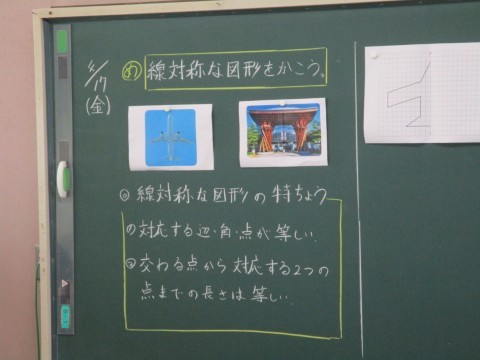 4/17
(金)
め 線対称な図形をかこう。
◎ 線対称な図形の特ちょう
対応する辺・角・点が等しい
交わる点から対応する2つの
点までの長さは等しい